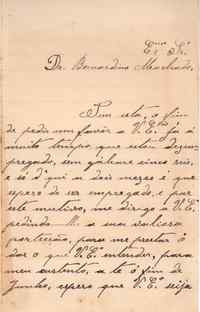 Exmo Sr.
Dr. Bernardino Machado,
Tem esta, o fim
de pedir um favor a V. Exa. foi á
muito tempo, que estou desem-
pregado, sem ganhar cinco reis,
e só d'qui a dois mezes é que
espero de ser empregado, e por
este motivo, me dirigo a V. Exa.
pedindo-lhe a sua valiosa
protecção, para me prestar ó
dar o que V. Exa. entender, para
meu sustento, a té ó fim de
Junho, espero que V. Exa. seija